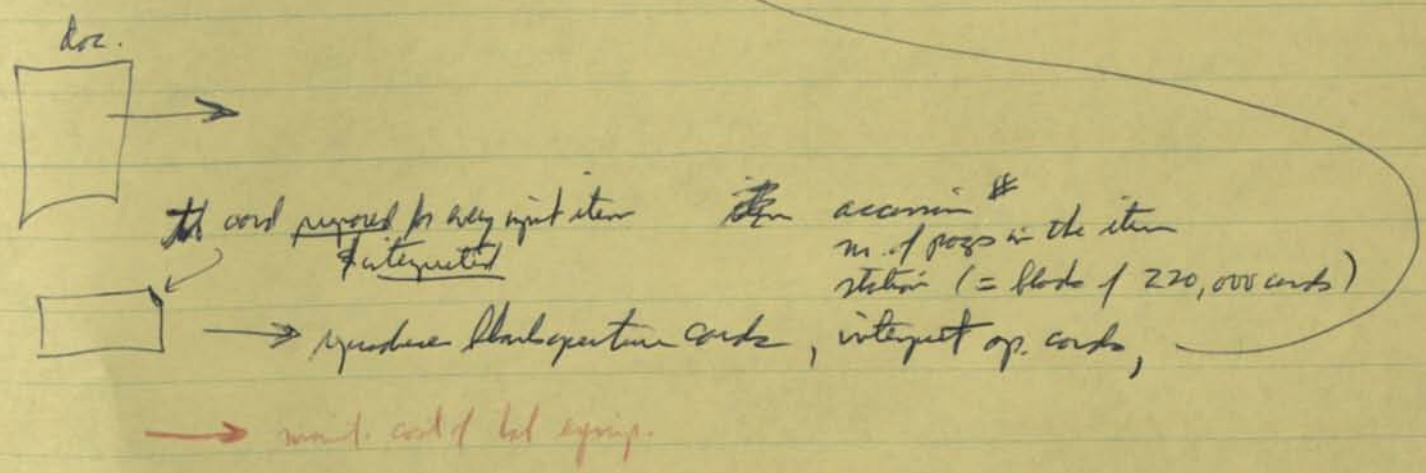 doc.
card prepared for every input item
& interpreted
accession #
no. of pages in the item
station (= block of 220,000 cards)
reproduce blank aperture cards, interpret ap. cards,
maint. cost of equip.